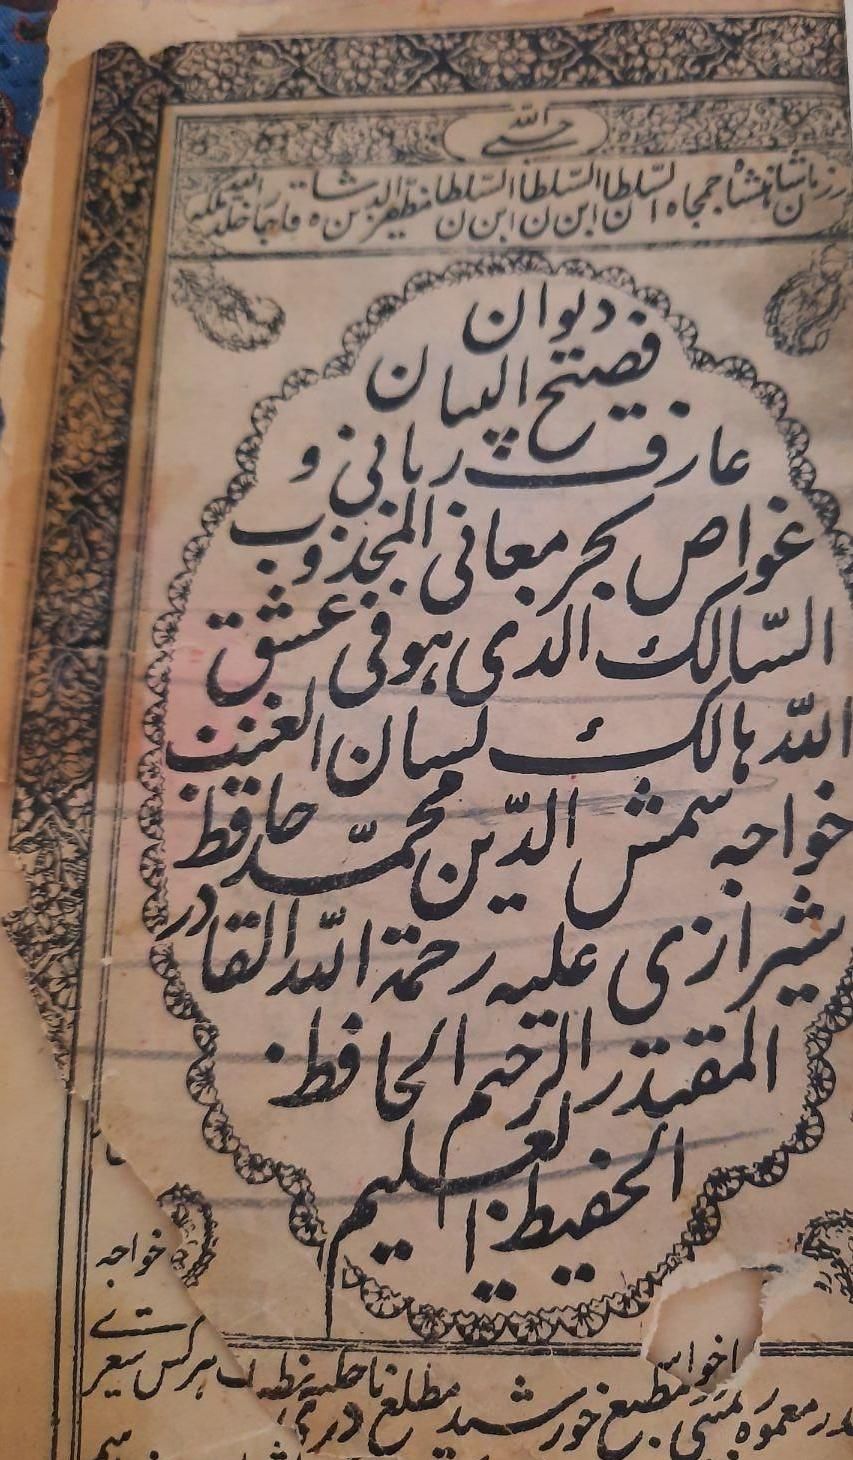 حسبی الله
شاهنشاه جمجاه السلطان ابن السلطان ابن السلطان ابن السلطان مظفرالدین شاه قاجار خلد الله ملکه
دیوان
فصیح البیان
عارف ربانی و
غواص بحر معانی المجذوب
السّالک الذی هو فی عشق
اللّه هالک لسان الغیب
خواجه شمس الدّین محمّد حافظ
شیرازی علیه رحمة اللّه القادر
المقتدر الرّحیم الحافظ
الحفیظ العلیم
خواجه
در معموره بمبئی مطبع خورشید مطلع
هر کس